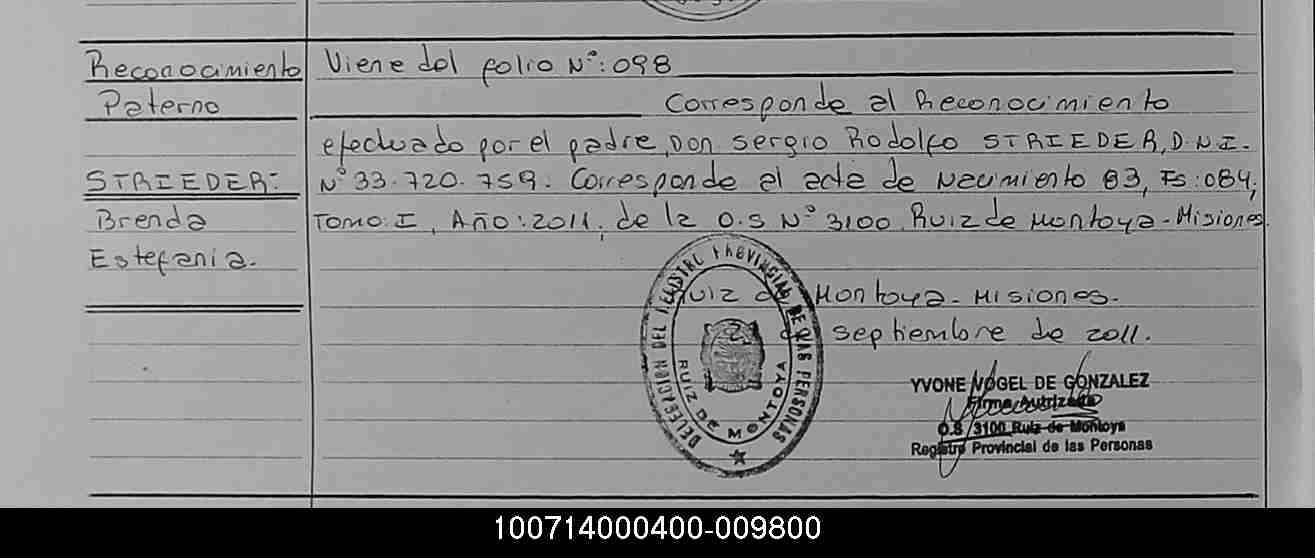 Reconocimiento
Paterno
STRIEDER:
Brenda
Estefania.
Viene del folio Nº: 098
Corresponde al Reconocimiento
efectuado por el padre, Don Sergio Rodolfo STRIEDER, D.N.I.
Nº 33.720.759. Corresponde al acta de Nacimiento 83, Fs: 084,
Tomo: I, Año: 2011, de la O.S Nº 3100. Ruiz de Montoya - Misiones.
Ruiz de Montoya - Misiones.
septiembre de 2011.
DELEGACION DEL REGISTRO PROVINCIAL DE LAS PERSONAS
RUIZ DE MONTOYA
YVONE VOGEL DE GONZALEZ
Firma Autrizada
O.S 3100 Ruiz de Montoya
Registro Provincial de las Personas
100714000400-009800